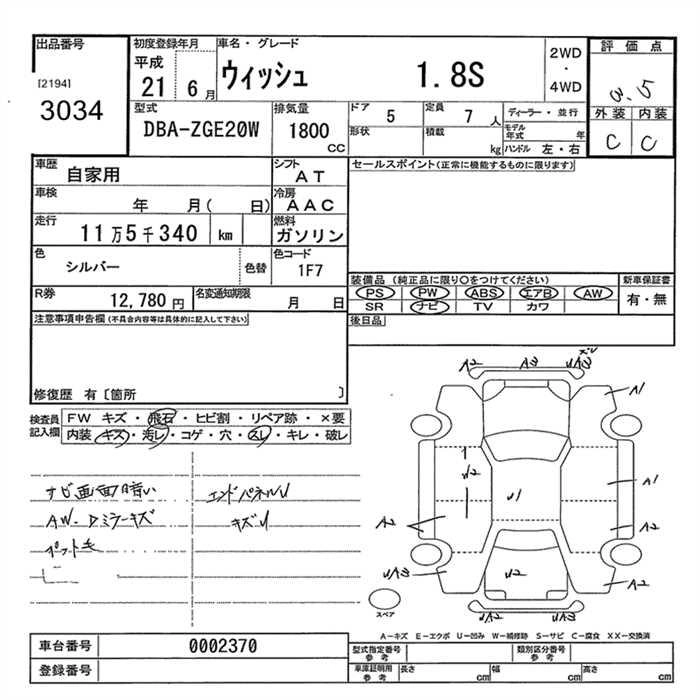 出品番号
[2194]
3034
初度登録年月
平成
21 6月
車名・グレード
ウィッシュ 1.8S
2WD
・
4WD
評価点
3.5
外装 内装
C C
型式
DBA-ZGE20W
排気量
1800
CC
ドア 5
定員 7 人
ディーラー・並行
形状
積載 kg
モデル年式 年
ハンドル 左・右
車歴 自家用
シフト
AT
車検 年 月( 日)
冷房
AAC
走行 11万5千340 km
燃料
ガソリン
色 シルバー 色替
色コード
1F7
R券 12,780円
名変通知期限 月 日
セールスポイント(正常に機能するものに限ります)
装備品(純正品に限り○をつけてください)
新車保証書
PS PW ABS エアB AW
SR ナビ TV カワ
有・無
後日品
注意事項申告欄(不具合内容等は具体的に記入して下さい)
修復歴 有〔箇所 〕
検査員記入欄
FW キズ・飛石・ヒビ割・リペア跡・×要
内装 キズ・汚レ・コゲ・穴・スレ・キレ・破レ
ナビ画面暗い
エンドパネルU
AW.Dミラーキズ
キズU
ペット毛
A2 A3 UA3 ズレ
A1
U2
U1
A1
A2
A2
UA3
U2
A2
スペア
UA2 UA2
A-キズ E-エクボ U-凹み W-補修跡 S-サビ C-腐食 XX-交換済
車台番号 0002370
登録番号
型式指定番号参考
類別区分番号参考
車庫証明用参考 長さ cm 幅 cm 高さ cm